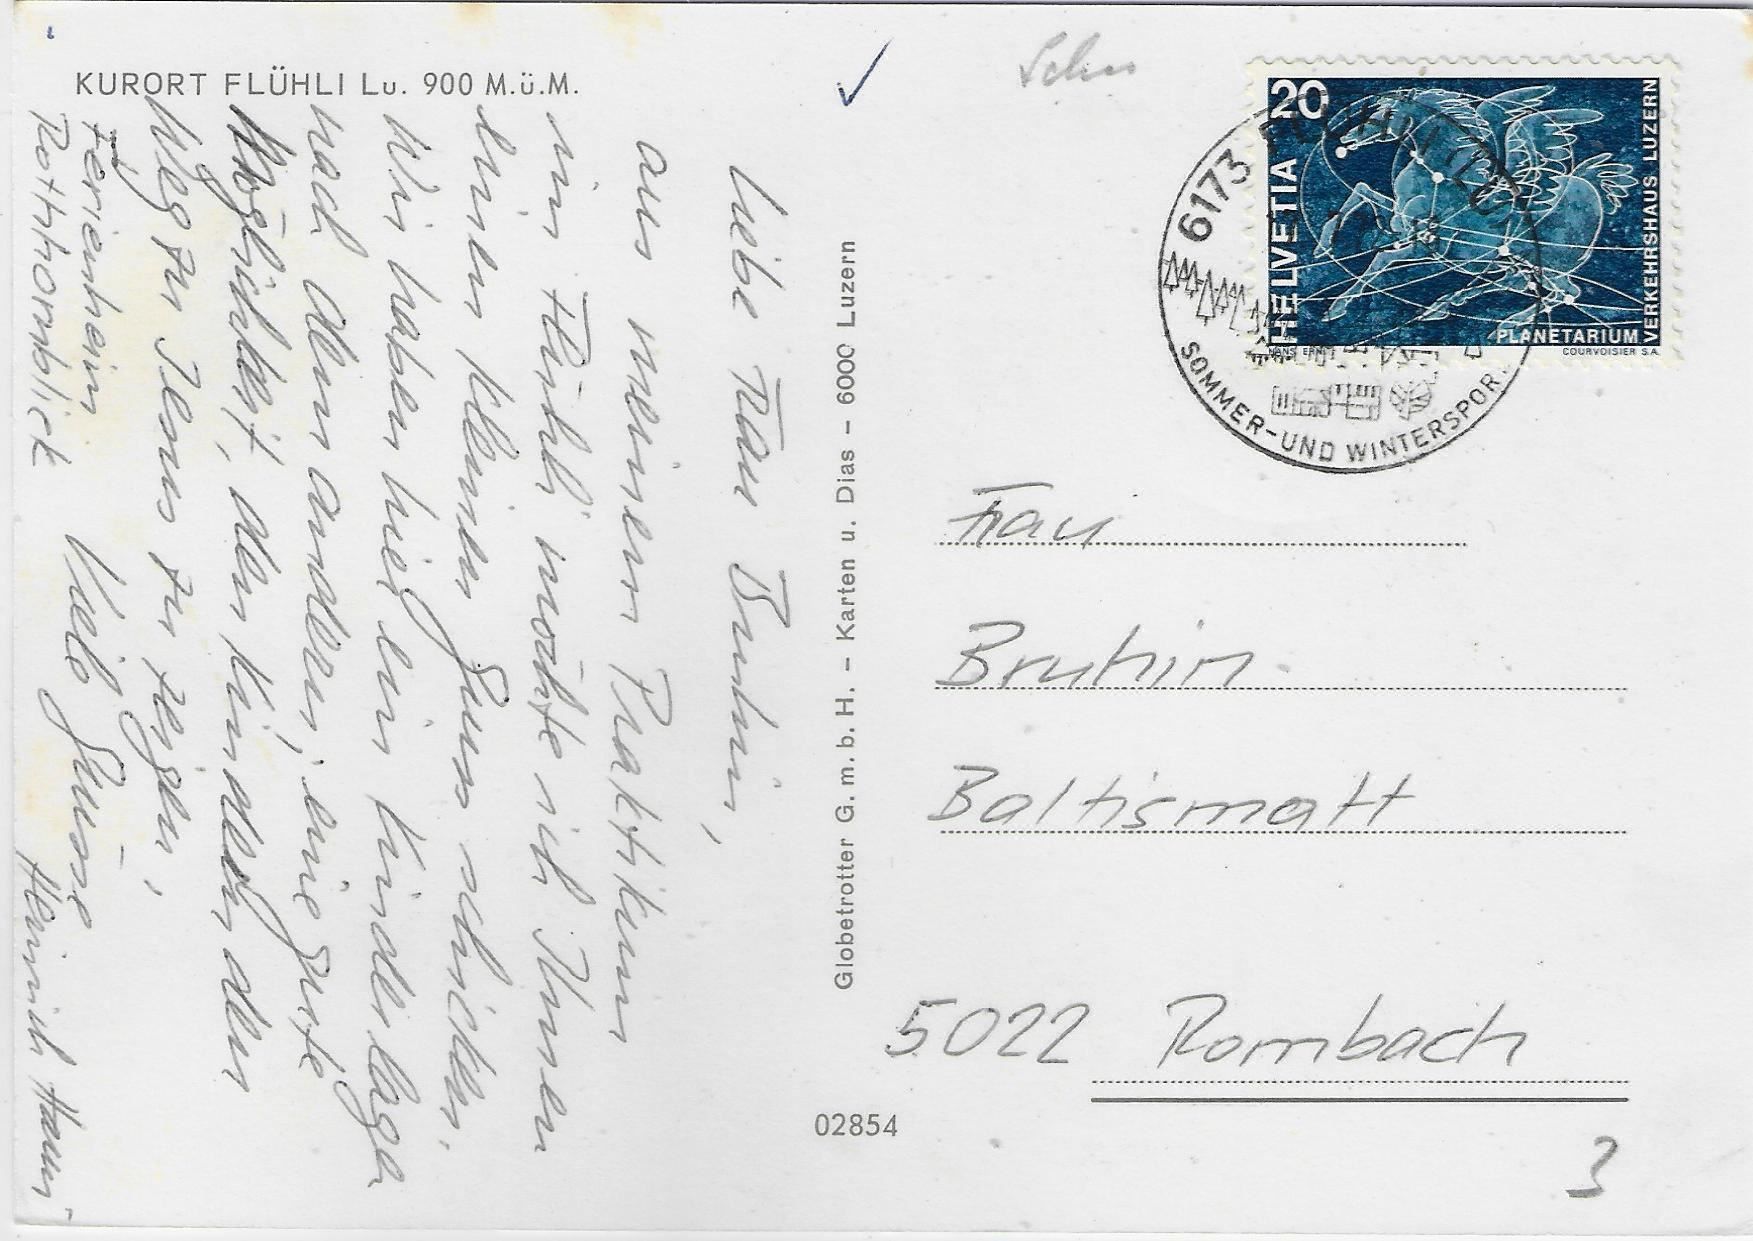 KURORT FLÜHLI Lu. 900 M.ü.M.
Liebe Frau Bruhin,
aus meinem Praktikum
im Flühli möchte ich Ihnen
einen kleinen Gruss schicken.
Wir haben hier ein Kinderlager
nach dem andern; eine gute
Möglichkeit, den Kindern den
Weg zu Jesus zu zeigen,
Viele Grüsse
Heinrich
Ferienheim
Rothhornblick
Globetrotter G. m. b. H. – Karten u. Dias – 6000 Luzern
02854
20
HELVETIA
VERKEHRSHAUS LUZERN
PLANETARIUM
HANS ERNI
COURVOISIER S.A.
6173 FLÜHLI (LU)
SOMMER-UND WINTERSPOR
Frau
Bruhin
Baltismatt
5022 Rombach
3